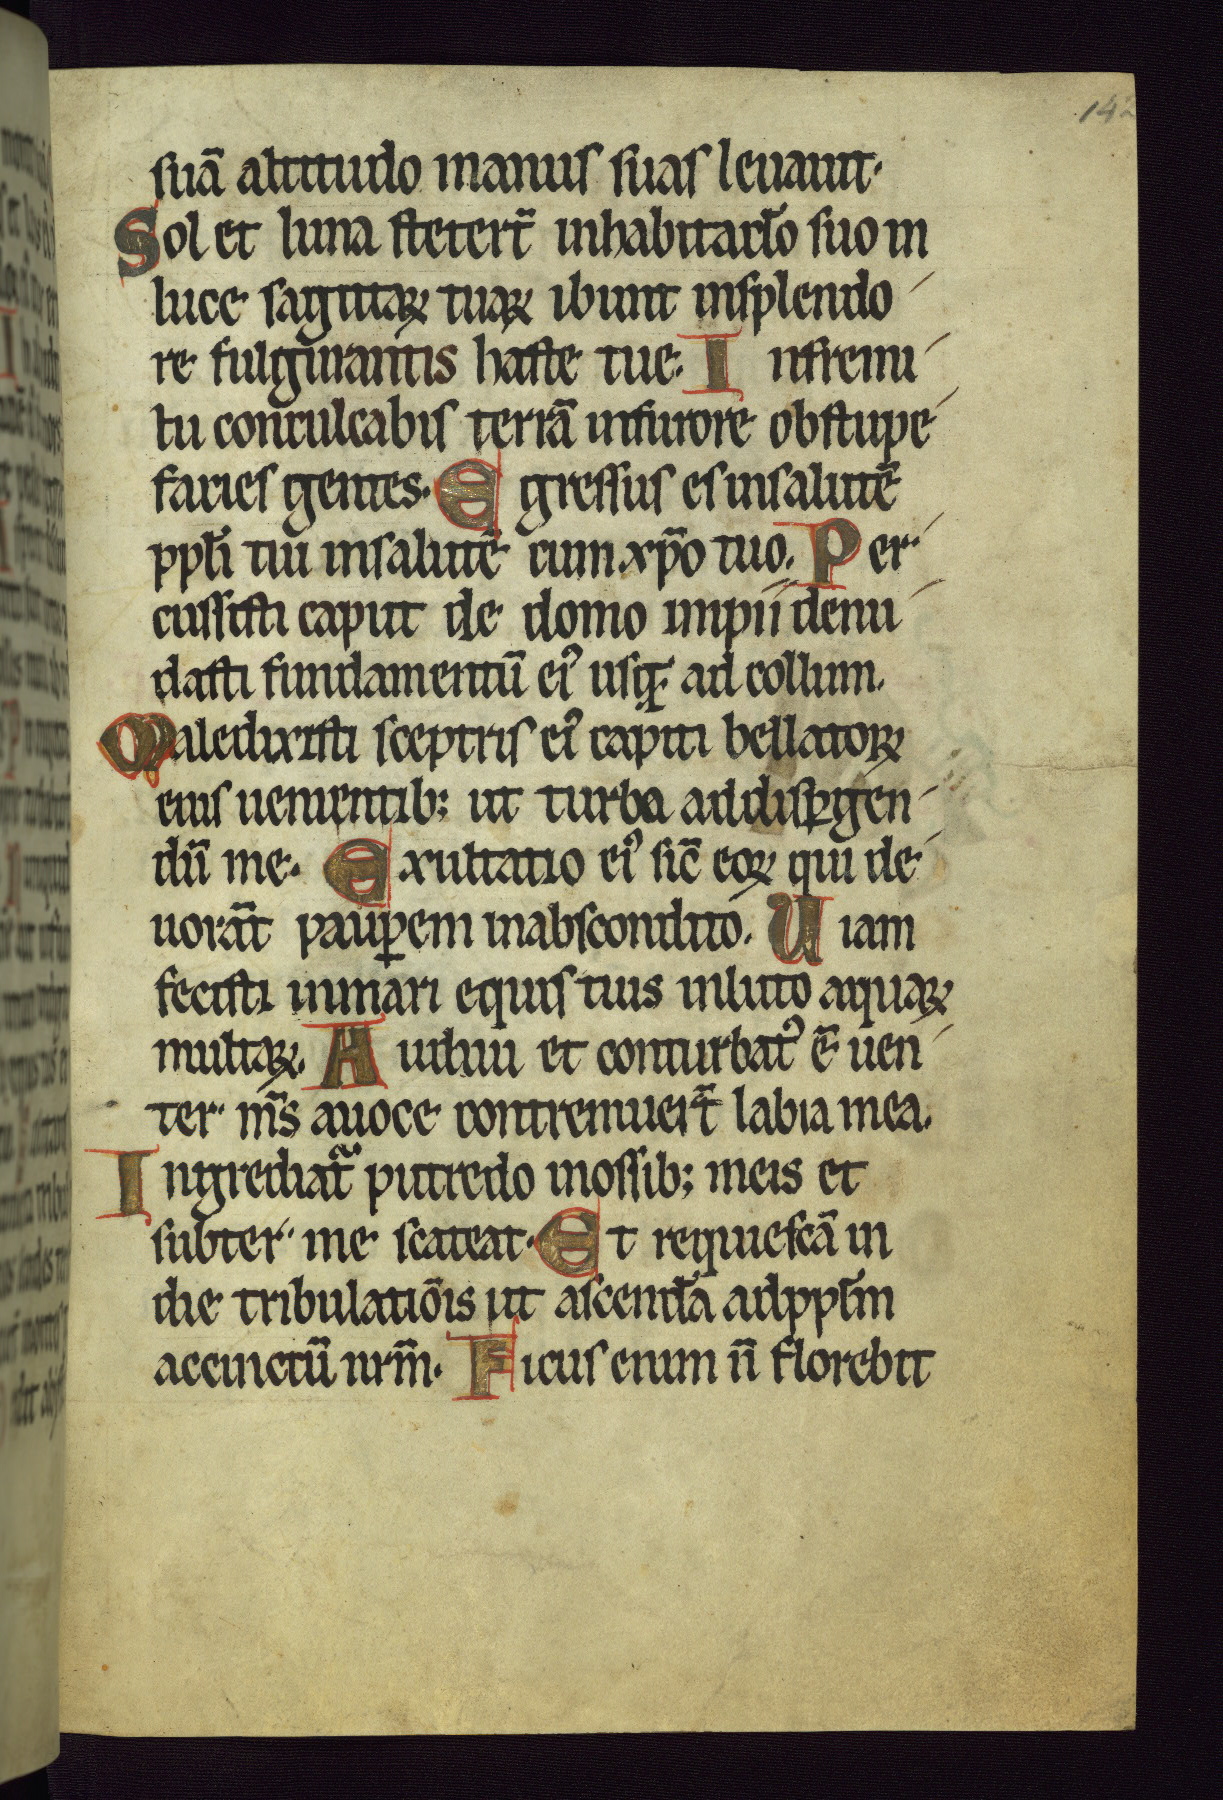 142
suā altitudo manus suas leuauit.
Sol et luna stetert̄ inhabitaclo suo in
luce sagittaꝝ tuaꝝ ibunt insplendo
re fulgurantis haste tue. Infremi
tu conculcabis terrā infurore obstupe
facies gentes. Egressus es insalutē
ppl̄i tui insalutē cum xp̄o tuo. Per
cussisti caput de domo impii denu
dasti fundamentū eiꝰ usqꝫ ad collum.
Maledixisti sceptris eiꝰ capiti bellatoꝝ
eius uenientibꝫ ut turbo addisꝑgen
dū me. Exultatio eiꝰ sic̄ eoꝝ qui de
uorāt pauꝑem inabscondito. Uiam
fecisti inmari equis tuis inluto aquaꝝ
multaꝝ. Audiui et conturbatꝰ ē uen
ter m̄s auoce contremuert̄ labia mea.
Ingrediat᷑ putredo inossibꝫ meis et
subter me scateat. Et requiescā in
die tribulatiōis ut ascendā adppl̄m
accinctū nrm̄. Ficus enim n̄ florebit